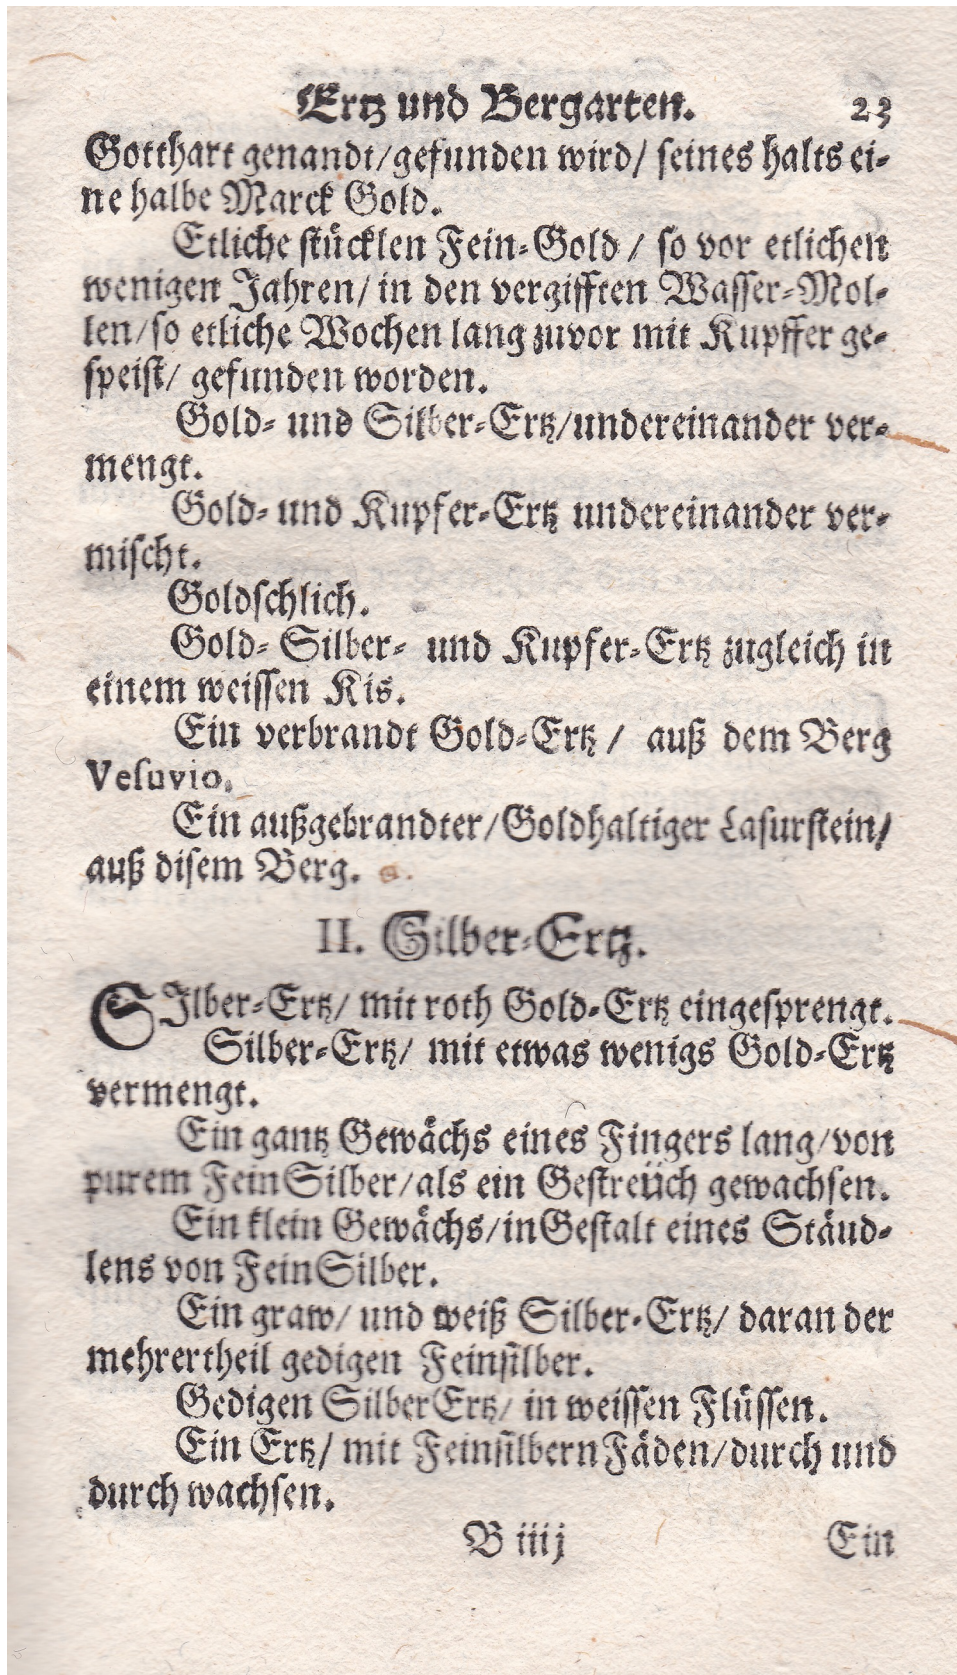 Ertz und Bergarten. 23
Gotthart genandt/gefunden wird/ seines halts ei-
ne halbe Marck Gold.
Etliche stücklen Fein-Gold / so vor etlichen
wenigen Jahren/ in den vergifften Wasser-Mol-
len/so etliche Wochen lang zuvor mit Kupffer ge-
speist/ gefunden worden.
Gold- und Silber-Ertz/undereinander ver-
mengt.
Gold- und Kupfer-Ertz undereinander ver-
mischt.
Goldschlich.
Gold- Silber- und Kupfer-Ertz zugleich in
einem weissen Kis.
Ein verbrandt Gold-Ertz / auß dem Berg
Vesuvio.
Ein außgebrandter/Goldhaltiger Lasurstein/
auß disem Berg.
II. Silber-Ertz.
SIlber-Ertz/ mit roth Gold-Ertz eingesprengt.
Silber-Ertz/ mit etwas wenigs Gold-Ertz
vermengt.
Ein gantz Gewächs eines Fingers lang/von
purem FeinSilber/als ein Gestreüch gewachsen.
Ein klein Gewächs/inGestalt eines Stäud-
lens von FeinSilber.
Ein graw/ und weiß Silber-Ertz/ daran der
mehrertheil gedigen Feinsilber.
Gedigen SilberErtz/ in weissen Flüssen.
Ein Ertz/ mit Feinsilbern Fäden/durch und
durch wachsen.
B iiij Ein